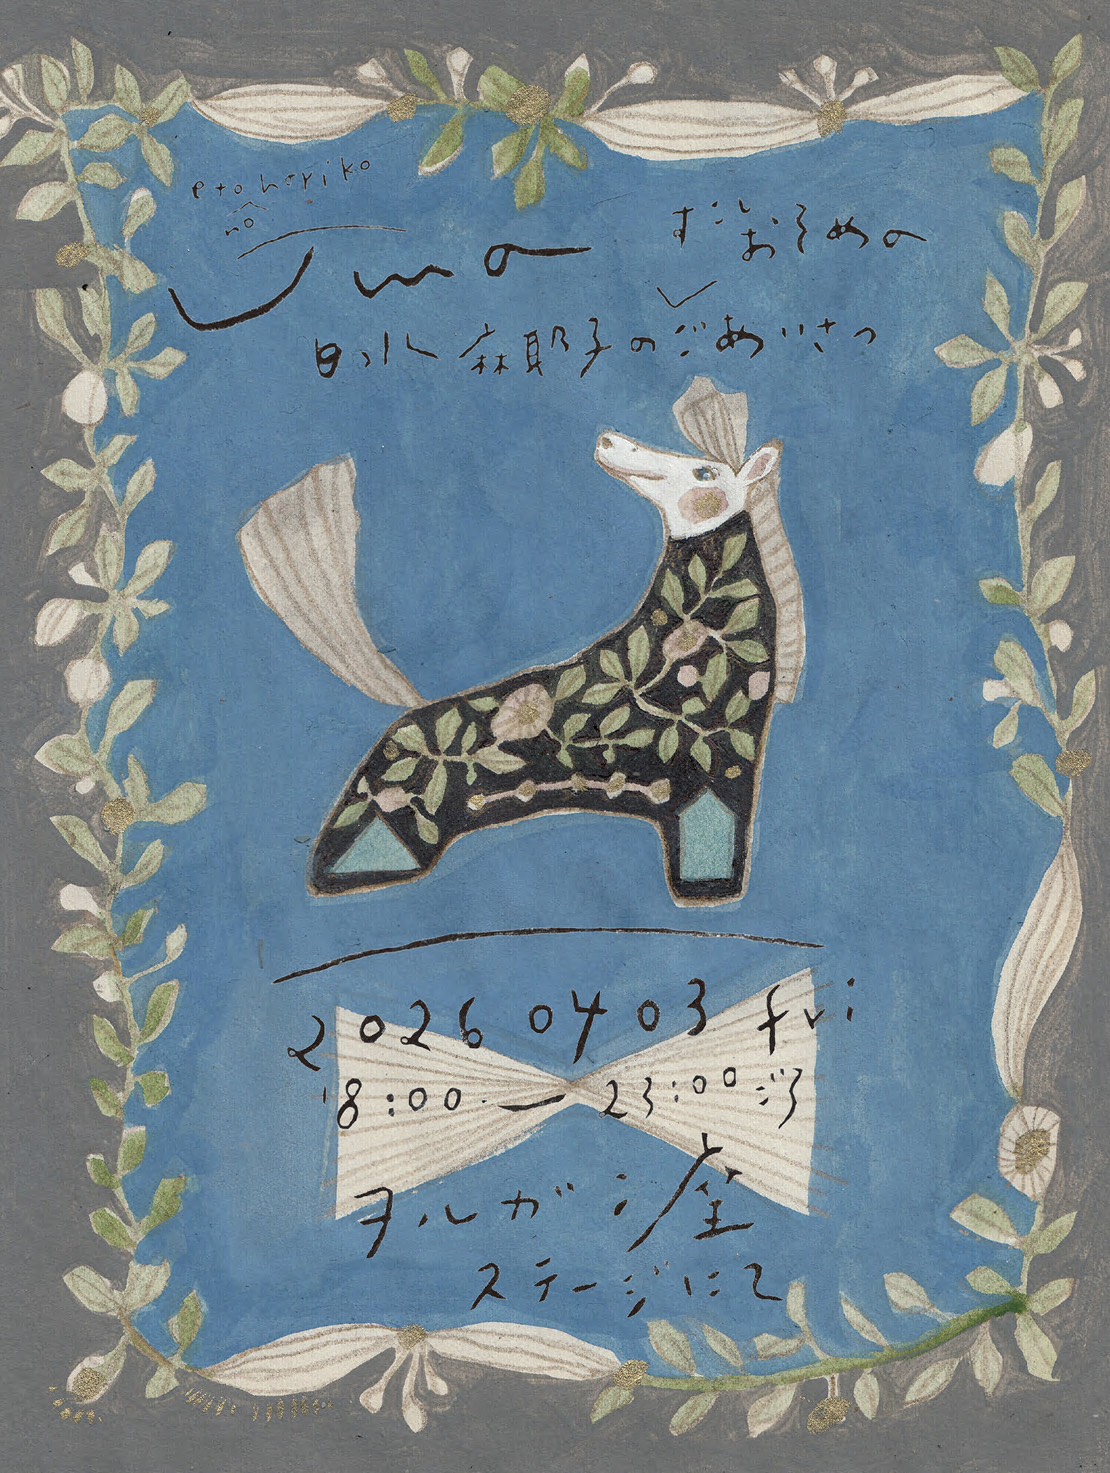 etohoriko
no
uma
おそめの
白水麻耶子のごあいさつ
2026 04 03 fri
18:00 — 23:00ごろ
ヲルガン座
ステージにて